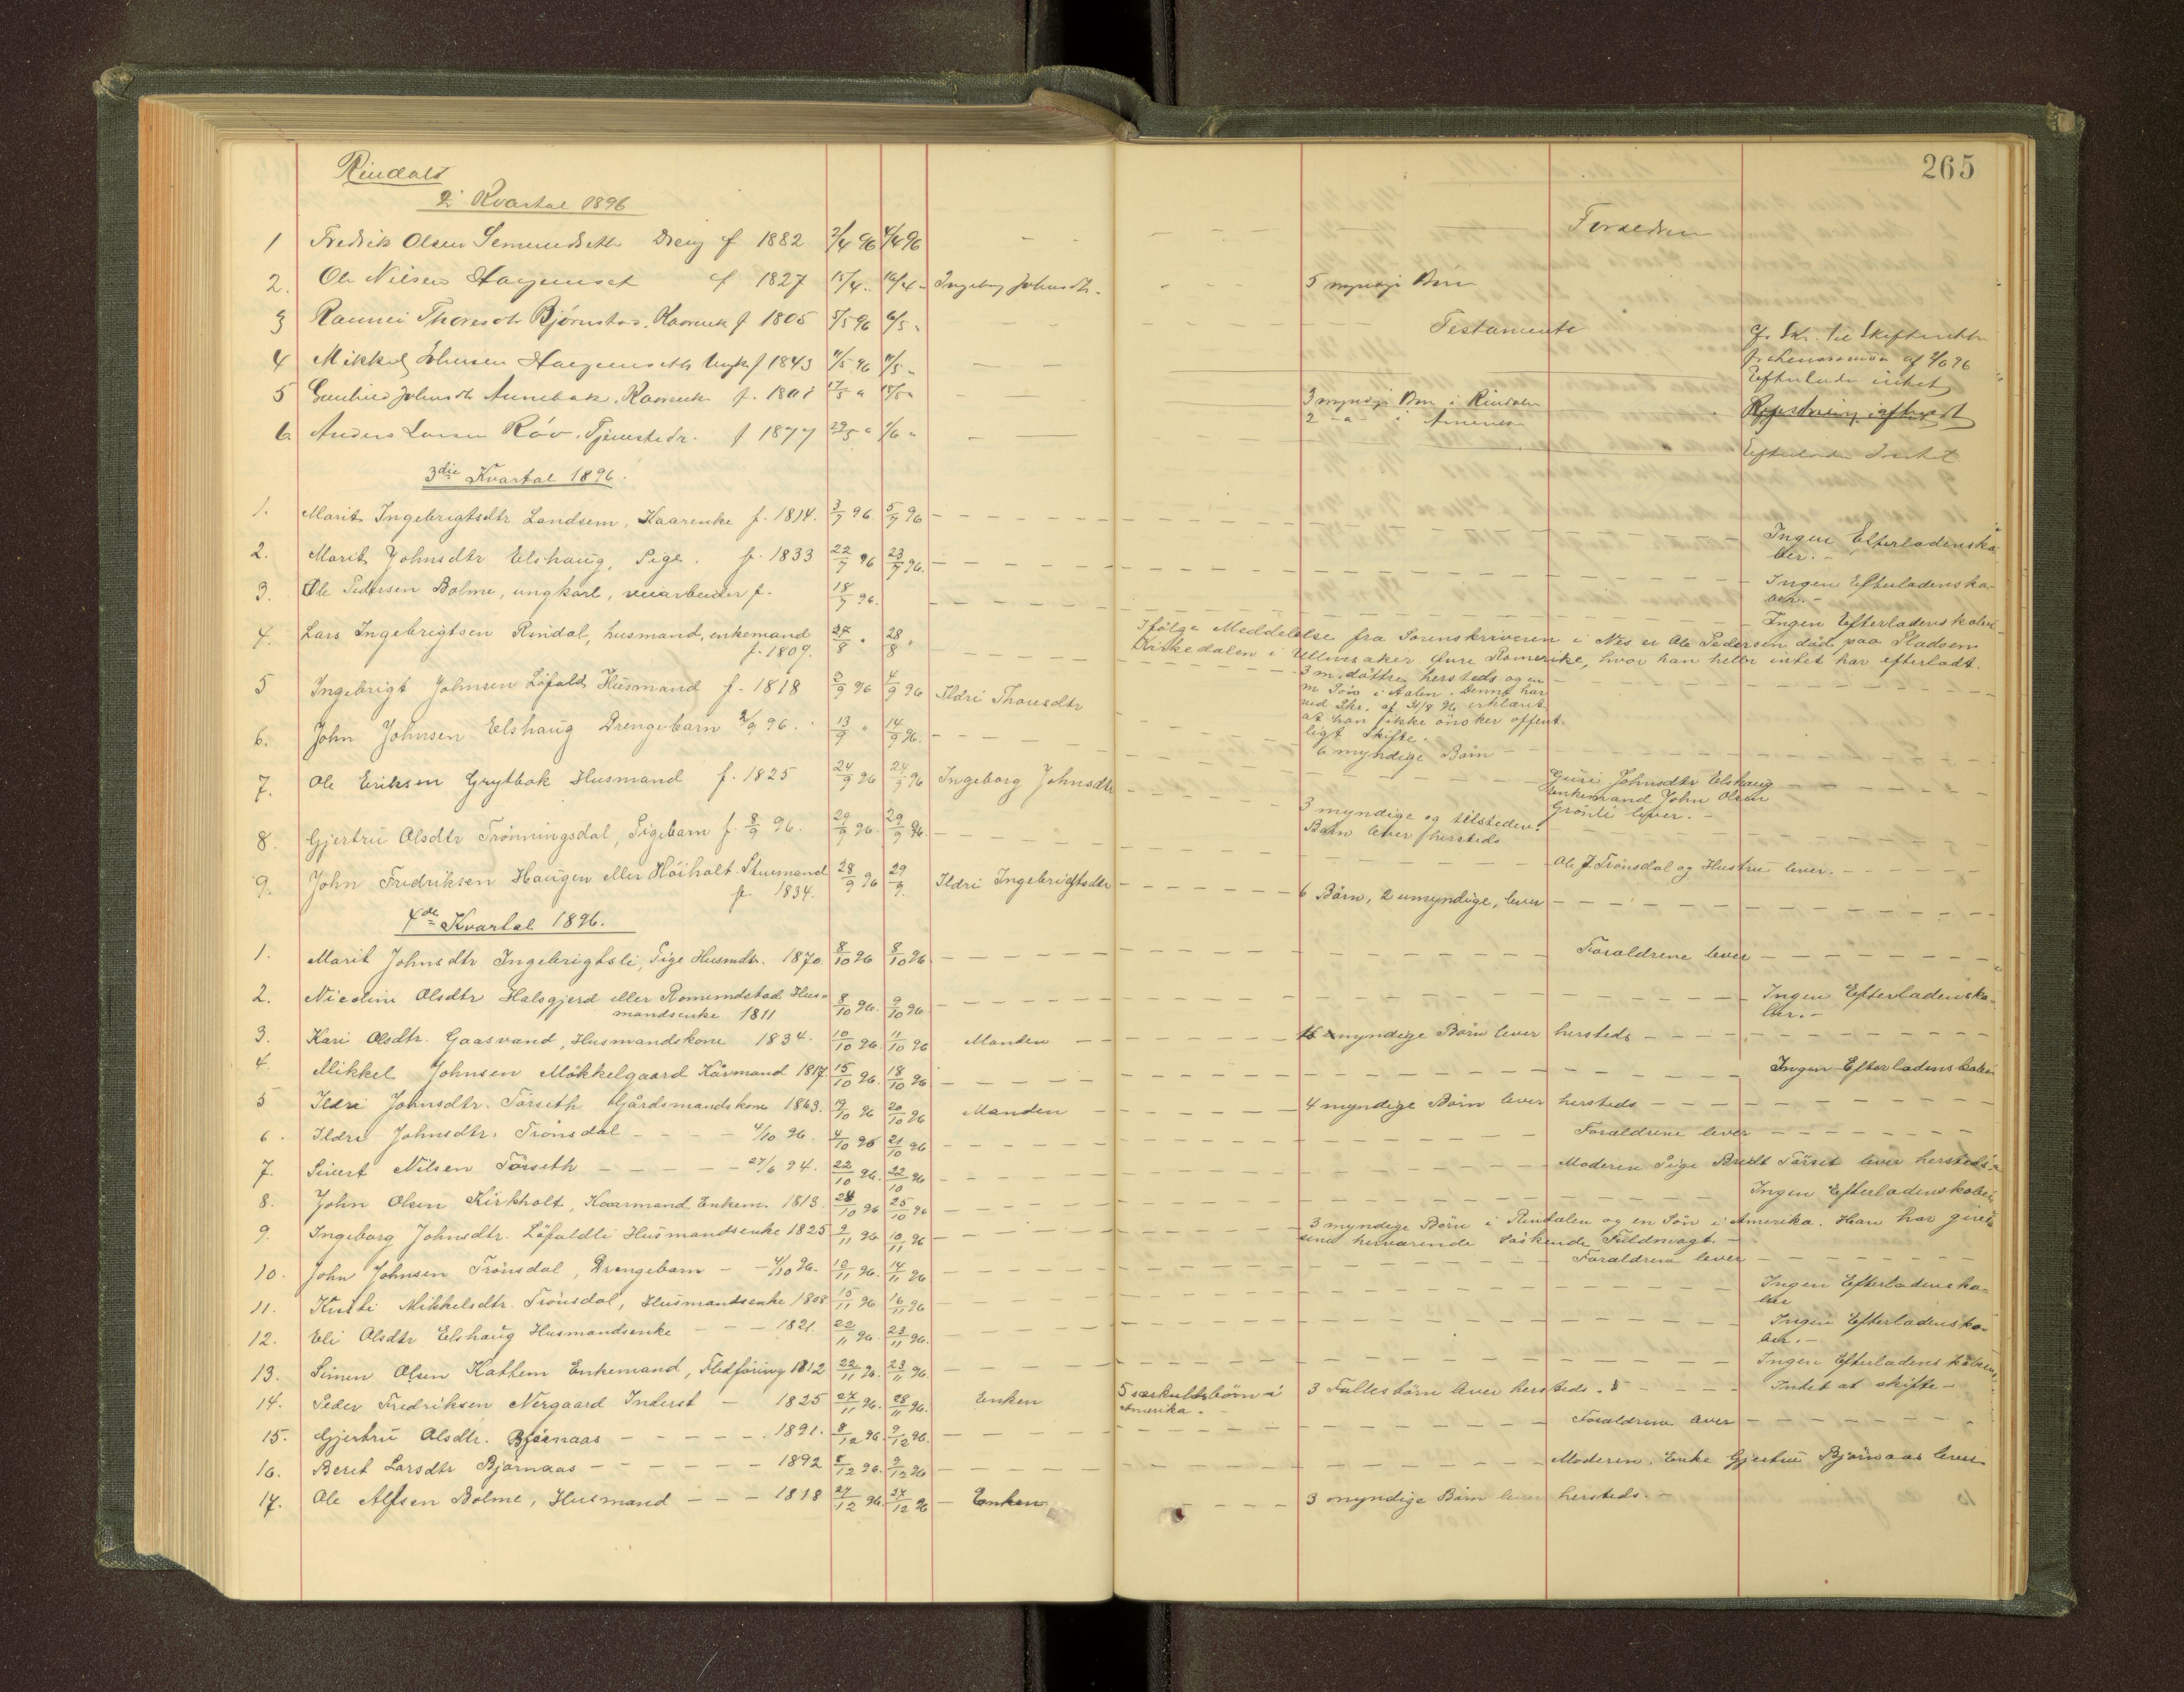 265
Rindals
2 Kvartal 1896
1 Fredrik Olsen Dreng f 1882 2/4 96 4/4 96 - - - - - Foraeldren
2. Ole Nilsen f 1827 15/4 " 16/4 " Ingeborg Johnsdtr. - - - 5 myndige Børn
3 Thoresdtr Bjørnstad. f 1805 5/5 96 6/5 " - - - Testamente
4 Mikkel Johnsen f 1843 11/5 96 11/5 " - -
Efterlader intet
5 Johnsdtr f. 1801 17/5 " 18/5 " - - 3 myndige Børn i Rindalen
2 -"- i Amerika
6. Anders Larsen Røv. f 1877 29/5 " 1/6 " - - Efterlader Intet
3die Kvartal 1896.
1. Marit Ingebrigtsdtr Landsem, Kaarenke f. 1814. 3/7 96. 5/7 96 - - - - - Ingen Efterladenska-
ber. -
2. Marit Johnsdtr Elshaug, Pige. f. 1833 22/7 96 23/7 96. - - - - - Ingen Efterladenska-
ber. -
3. Ole Pedersen Bolme, ungkarl, f. 18/7 96. - - - - - Ingen Efterladenskaber
Ifølge Meddelelse fra Sorenskriveren i Nes er Ole Pedersen død paa Pladsen
Kiskedalen i Ullinsaker Øvre Romerike, hvor han heller intet har efterladt.
4. Lars Ingebrigtsen Rindal, husmand, enkemand 27/8 " 28/8 " - - - - -
f. 1809.
3 m. døttre hersteds og en
m Søn i Aalen. Denne har
ved Skr. af 31/8 96 erklært
at han ikke ønsker offent-
ligt skifte.
5 Ingebrigt Johnsen Løfald Husmand f. 1818 3/9 96 4/9 96 Ildri Thoresdtr - 6 myndige Børn - - -
6. John Johnsen Elshaug Drengebarn 2/9 96. 13/9 " 14/9 96. - - - - - Guri Johnsdtr Elshaug
enkemand John Olsen
Grønli lever. -
7. Ole Eriksen Grytbak Husmand f. 1825 24/9 96 24/9 96 Ingeborg Johnsdtr - - - 3 myndige og tilstedev.
Børn lever hersteds
8. Gjertru Olsdtr Trønningsdal, Pigebarn f. 8/9 96. 29/9 96. 29/9 96. - - - - - Ole J Trønsdal og Hustru lever. - - -
9. John Fredriksen Haugen eller Høiholt Husmand 28/9 96 29/9. Ildri Ingebrigtsdtr - - - 6 Børn, 2 umyndige, lever - - -
f. 1834.
4de Kvartal 1896.
1. Marit Johnsdtr Ingebrigtsli, Pige Husmdtr. 1870. 8/10 96 8/10 96 - - - - - Foraldrene lever - - -
2. Nicoline Olsdtr Halsgjerd eller Romundstad Hus- 8/10 96. 9/10 96 - - - - - Ingen Efterladenska-
mandsenke 1811 ber. -
3. Kari Olsdtr. Gaasvand, Husmandskone 1834. 10/10 96. 11/10 96 Manden - - - 6 myndige Børn lever hersteds - - -
4. Mikkel Johnsen Møkkelgaard Kårmand 1817. 15/10 96. 18/10 96 - - - - - Ingen Efterladenskaber
5 Ildri Johnsdtr. Tørseth Gårdsmandskone 1863. 19/10 96 20/10 96 Manden - - - 4 myndige Børn lever hersteds - - -
6. Ildri Johnsdtr. Trønsdal - - - 4/10 96. 4/10 96 21/10 96 - - - - - Foraldrene lever - - -
7. Sivert Nilsen Tørseth - - - 27/6 94. 22/10 96. 22/10 96 - - - - - Moderen Pige Tørset lever hersteds
8. John Olsen Kirkholt, Kaarmand Enkem. 1813. 24/10 96 25/10 96 - - - - - Ingen Efterladenskaber
9. Ingeborg Johnsdtr. Løfaldli Husmandsenke 1825 9/11 96. 10/11 96 - - - 3 myndige Børn i Rindalen og en Søn i Amerika. Han har givet
sine herværende Søskende Fuldmagt -
10. John Johnsen Trønsdal, Drengebarn - - 4/10 96. 12/11 96. 14/11 96 - - - - - Foraldrene lever - - -
11. Kirsti Mikkelsdtr. Trønsdal, Husmandsenke 1808. 15/11 96 16/11 96 - - - - - Ingen Efterladenska-
ber
12. Eli Olsdtr Elshaug Husmandsenke - - - 1821. 22/11 96. 23/11 96. - - - - - Ingen Efterladenska-
ber. -
13. Simen Olsen Kathem Enkemand, Flodføring 1812 22/11 96. 23/11 96. - - - - - Ingen Efterladenskaber
14. Peder Fredriksen Nergaard Inderst - 1825 27/11 96. 28/11 96. Enken 5 særkuldsbørn i 3 Fallesbørn lever hersteds. - - - Intet at skifte -
Amerika. -
15. Gjertru Olsdtr. Bjørnaas - - - 1891. 8/12 96. 9/12 96. - - - - - Foraldrene lever - - -
16. Beret Larsdtr Bjørnaas - - - 1892 8/12 96. 9/12 96 - - - - - Moderen. Enke Gjertru Bjørnaas lever
17. Ole Alfsen Bolme, Husmand - - - 1818 27/12 96. 27/12 96 - Enken - - - 3 myndige Børn lever hersteds. -